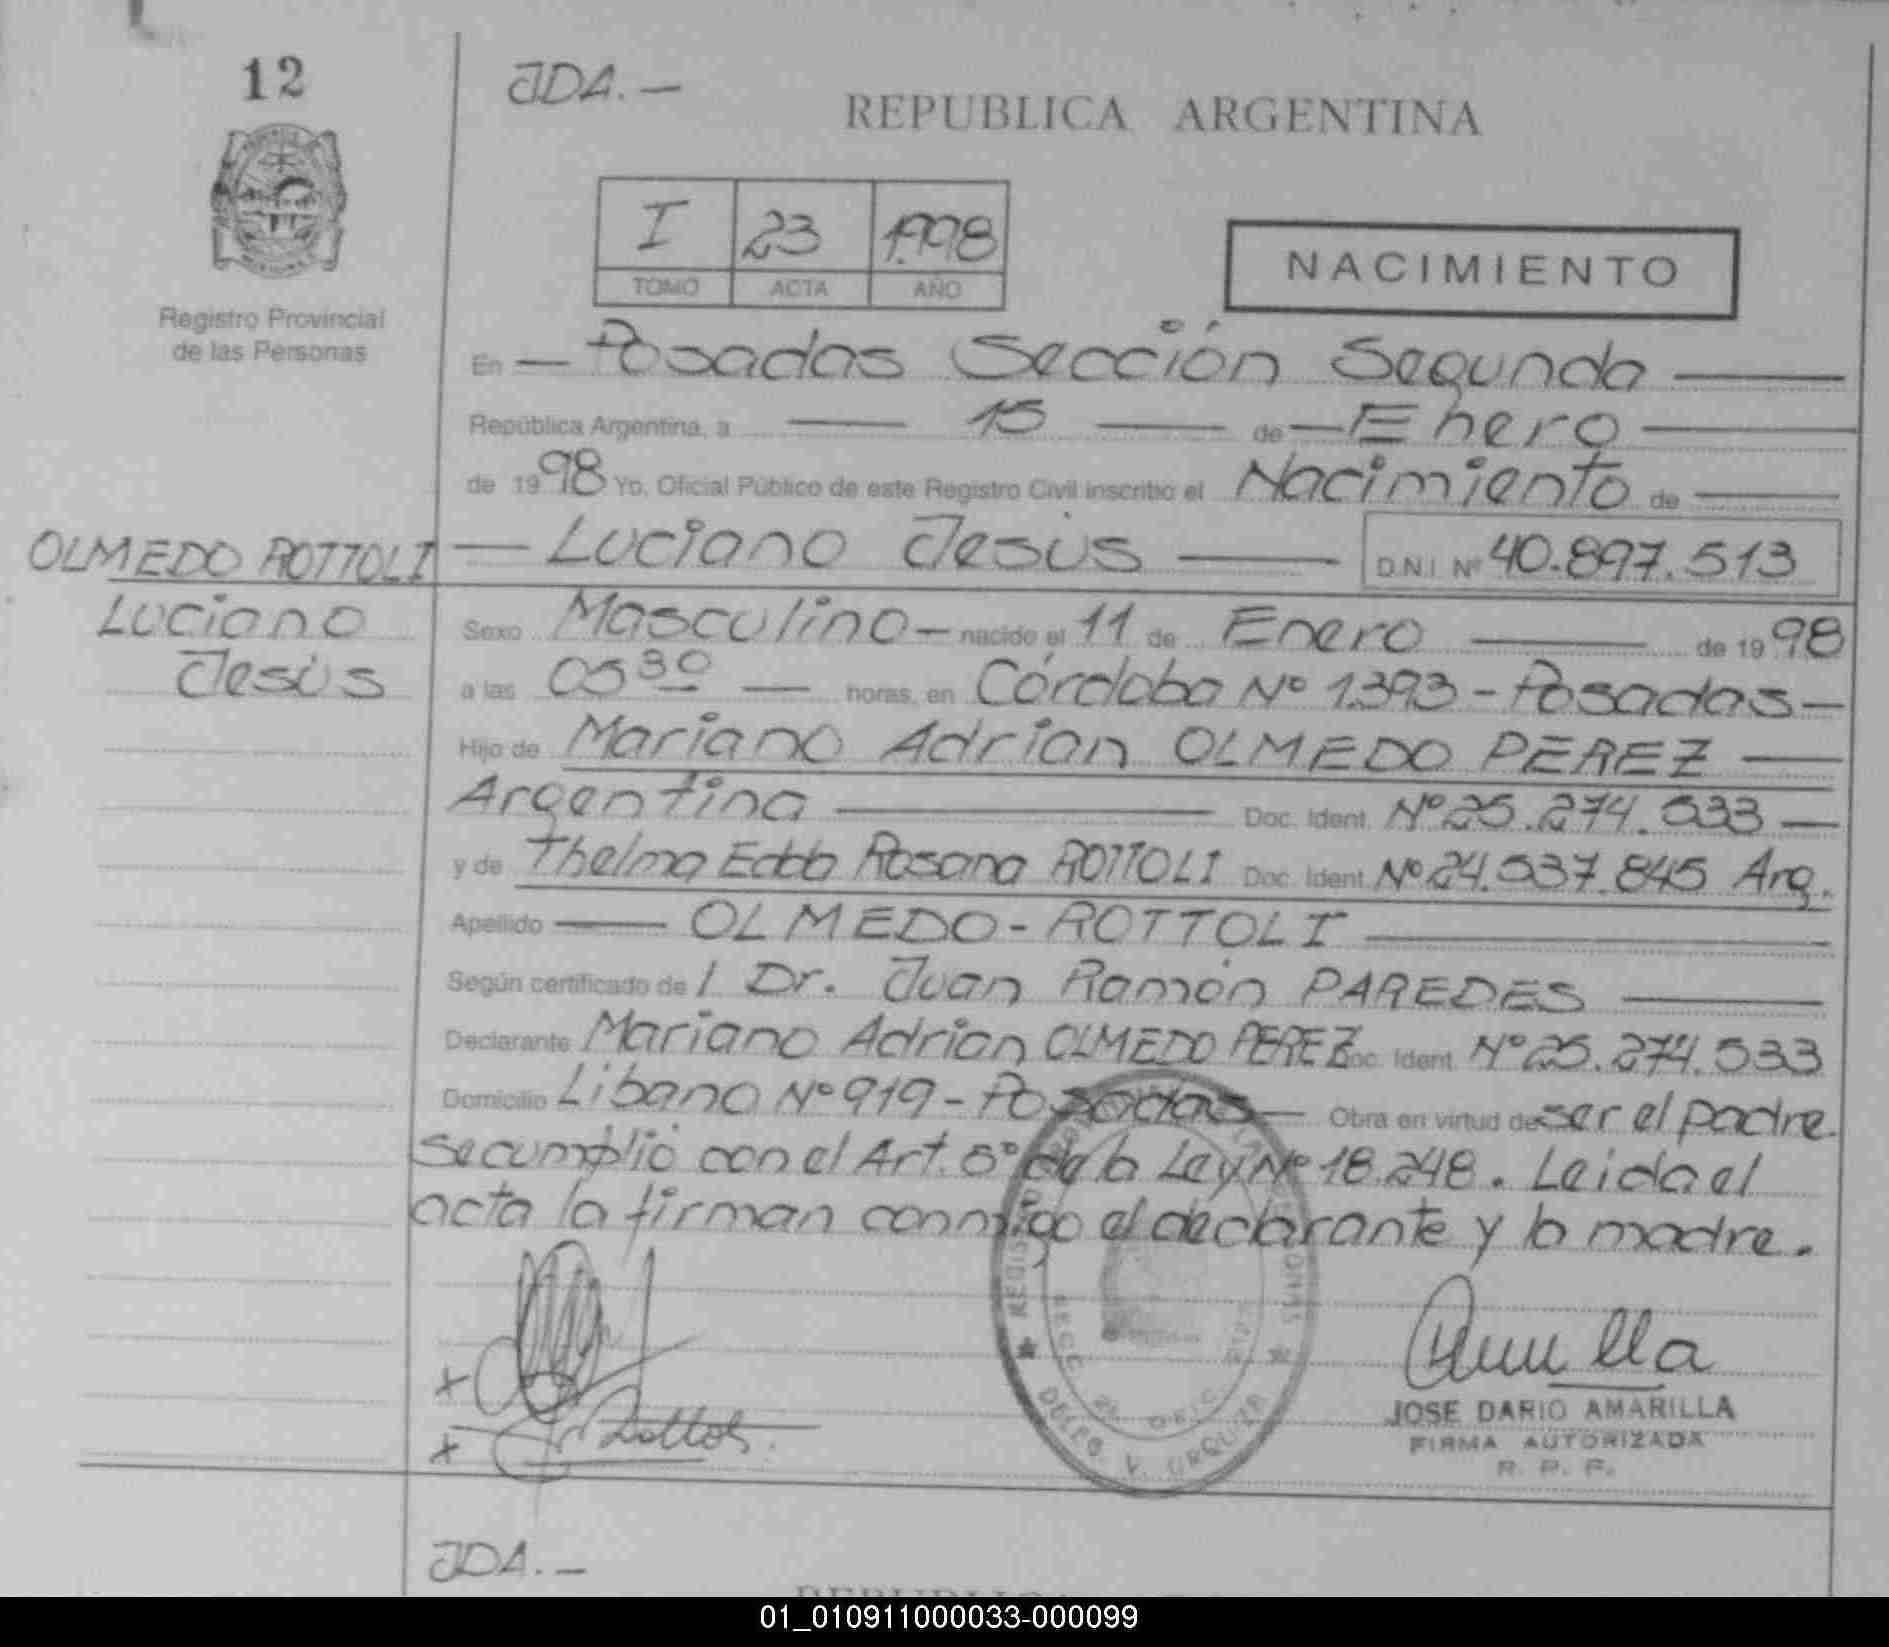 12
JDA.-
REPUBLICA ARGENTINA
I 23 1.998
TOMO ACTA AÑO
NACIMIENTO
Registro Provincial
de las Personas
En — Posadas Sección Segunda —
República Argentina, a — 15 — de — Enero —
de 1998 Yo, Oficial Público de este Registro Civil inscribo el Nacimiento de —
— Luciano Jesús — D.N.I. Nº 40.897.513
OLMEDO ROTTOLI
Luciano
Jesús
Sexo Masculino — nacido el 11 de Enero — de 1998
a las 05 30 — horas, en Córdoba Nº 1.393 - Posadas —
Hijo de Mariano Adrian OLMEDO PEREZ —
Argentina — Doc. Ident. Nº 25.274.533 —
y de Thelma Edda Rosana ROTTOLI Doc. Ident. Nº 24.537.845 Arg.
Apellido — OLMEDO - ROTTOLI —
Según certificado de l Dr. Juan Ramón PAREDES —
Declarante Mariano Adrian OLMEDO PEREZ Doc. Ident. Nº 25.274.533
Domicilio Libano Nº 919 - Posadas — Obra en virtud de ser el padre.
Se cumplió con el Art. 5º de la Ley Nº 18.248. Leida el
acta la firman conmigo el declarante y la madre.
JOSE DARIO AMARILLA
FIRMA AUTORIZADA
R. P. P.
JDA.-
01_010911000033-000099